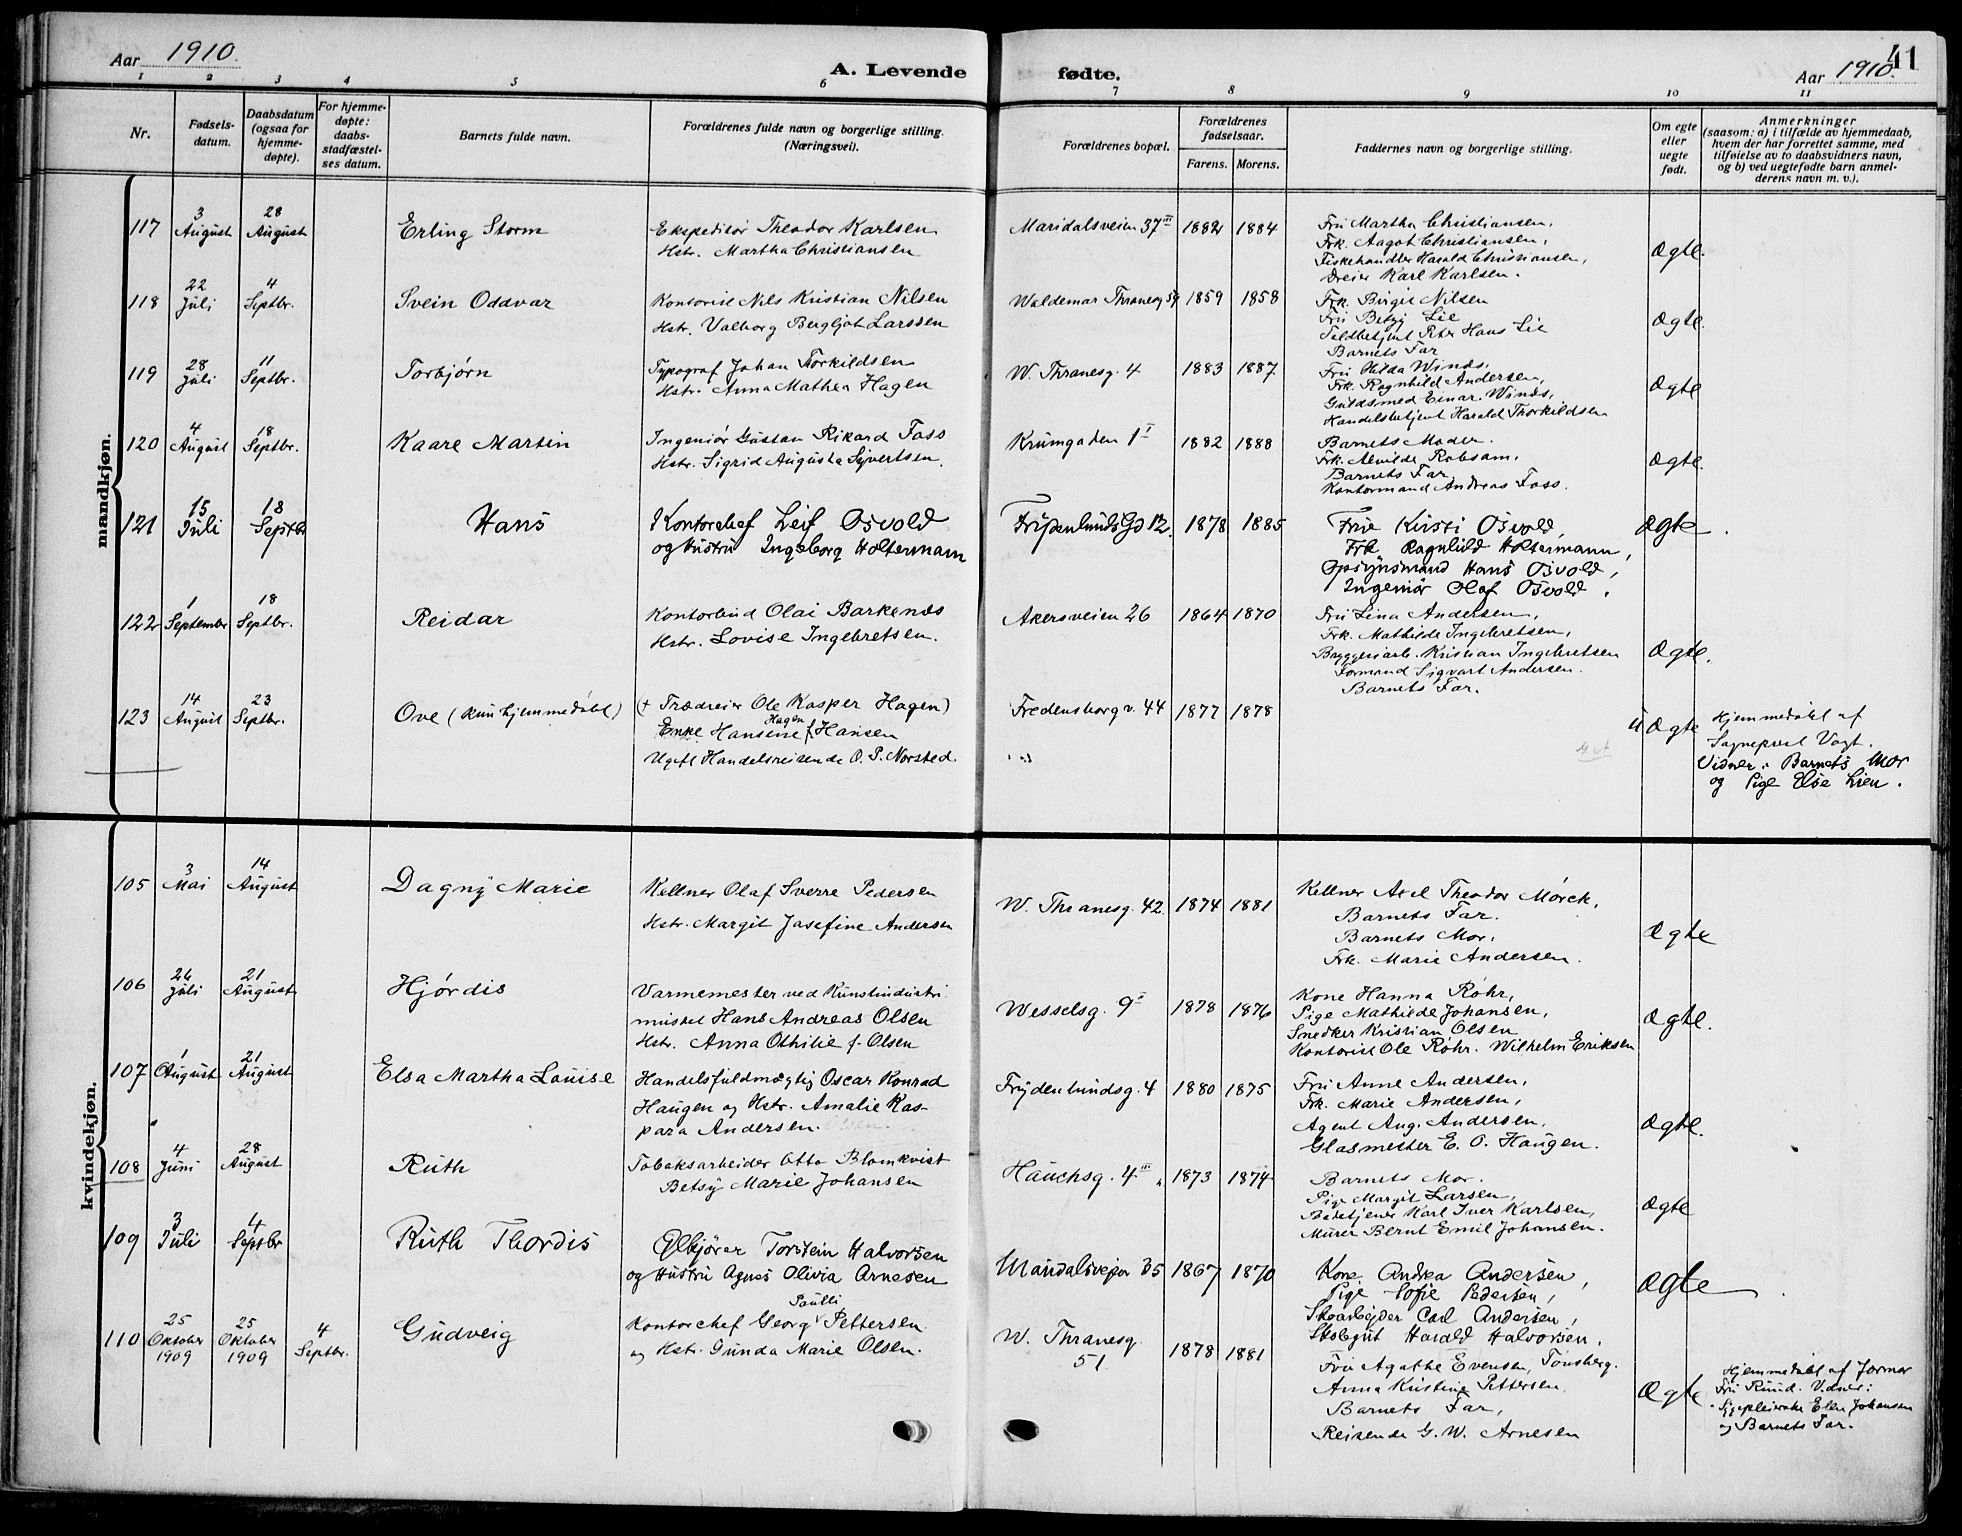 Aar 1910.
A. Levende fødte.
Aar 1910.
41
1 2 3 4 5 6 7 8 9 10 11
Nr.
Fødsels-
datum.
Daabsdatum
(ogsaa for
hjemme-
døpte).
For hjemme-
døpte:
daabs-
stadfæstel-
ses datum.
Barnets fulde navn.
Forældrenes fulde navn og borgerlige stilling.
(Næringsvei).
Forældrenes bopæl.
Forældrenes
fødselsaar.
Farens. Morens.
Faddernes navn og borgerlige stilling.
Om egte
eller
uegte
født.
Anmerkninger
(saasom: a) i tilfælde av hjemmedaab,
hvem der har forrettet samme, med
tilføielse av to daabsvidners navn,
og b) ved uegtefødte barn anmel-
derens navn m. v.).
mandkjøn.
117 3 August 28 August Erling Storm
Ekspeditør Theodor Karlsen
Hstr. Martha Christiansen
Maridalsveien 37 III 1882 1884
Fru Martha Christiansen,
Frk. Aagot Christiansen,
Fiskehandler Harald Christiansen,
Dreier Karl Karlsen.
Ægte.
118 22 Juli 4 Septbr. Svein Oddvar
Kontorist Nils Kristian Nilsen
Hstr. Valborg Bergljot Larssen
Waldemar Thranesg 59 1859 1858
Frk. Birgit Nilsen
Fru Betzy Lie
Toldbetjent Peter Hans Lie
Barnets Far
Ægte.
119 28 Juli 11 Septbr. Torbjørn
Typograf Johan Thorkildsen
Hstr. Anna Mathea Hagen
W. Thranesg. 4 1883 1887
Fru Hilda Winds,
Frk. Ragnhild Andersen,
Guldsmed Einar Winds,
Handelsbetjent Harald Thorkildsen
Ægte
120 4 August 18 Septbr. Kaare Martin
Ingeniør Gustav Rikard Foss
Hstr. Sigrid Augusta Syvertsen.
Krumgaden 1 I 1882 1888
Barnets Moder.
Frk. Alvilde Robsam,
Barnets Far
Kontormand Andreas Foss.
Ægte.
121 15 Juli 18 Septbr Hans
Kontorchef Leif Osvold
og Hustru Ingeborg Holtermann
Frydenlunds Gd 12. 1878 1885
Frue Kirsti Osvold,
Frk Ragnhild Holtermann,
Opsynsmand Hans Osvold,
Ingeniør Olaf Osvold.
Ægte.
122 1 September 18 Septbr. Reidar
Kontorbud Olai Barkenæs
Hstr. Lovise Ingebretsen.
Akersveien 26 1864 1870
Fru Lina Andersen,
Frk. Mathilde Ingebretsen,
Bryggeriarb. Kristian Ingebretsen
Formand Sigvart Andersen.
Barnets Far.
Ægte.
123 14 August 23 Septbr. Ove (kun hjemmedøbt)
(+ Trædreier Ole Kasper Hagen)
Enke Hansine Hagen f. Hansen
Ugift Handelsreisende O. P. Norsted.
Fredensborgv. 44 1877 1878
U Ægte
Hjemmedøbt af
Sognepræst Vogt.
Vidner: Barnets Mor
og Pige Else Lien.
kvindekjøn.
105 3 Mai 14 August Dagny Marie
Kellner Olaf Sverre Pedersen
Hstr. Margit Josefine Andersen
W. Thranesg. 42. 1874 1881
Kellner Axel Theodor Mörck,
Barnets Far.
Barnets Mor.
Frk. Marie Andersen.
Ægte
106 26 Juli 21 August Hjørdis
Varmemester ved Kunstindustri
museet Hans Andreas Olsen
Hstr. Anna Othilie f. Olsen
Wesselsg. 9 I 1878 1876
Kone Hanna Röhr,
Pige Mathilde Johansen,
Snedker Kristian Olsen
Kontorist Ole Röhr. Wilhelm Eriksen
Ægte.
107 1 August 21 August Elsa Martha Louise
Handelsfuldmægtig Oscar Konrad
Haugen og Hstr. Amalie Kas-
para Andersen.
Frydenlundsg. 4 1880 1875
Fru Anne Andersen,
Frk. Marie Andersen,
Agent Aug. Andersen,
Glasmester E. O. Haugen.
Ægte.
108 4 Juni 28 August Ruth
Tobaksarbeider Otto Blomkvist
Betsy Marie Johansen
Hauchsg. 4 III 1873 1874
Barnets Mor.
Pige Margit Larsen,
Badetjener Karl Iver Karlsen,
Murer Bernt Emil Johansen.
Ægte
109 3 Juli 4 Septbr Ruth Thordis
Ølkjører Torstein Halvorsen
og Hustru Agnes Olivia Arnesen
Maridalsveien 35 1867 1870
Kone Andrea Andersen,
Pige Sofie Pedersen,
Skoarbejder Carl Andersen,
Skolegut Harald Halvorsen.
Ægte
110 25 Oktober 1909 25 Oktober 1909 4 Septbr. Gudveig
Kontorchef Georg Paulli Pettersen
og Hstr. Gunda Marie Olsen.
W. Thranesg.
51 1878 1881
Fru Agathe Evensen, Tønsberg.
Anna Kristine Pettersen
Barnets Far,
Reisende G. W. Arnesen
Ægte
Hjemmedøbt af Jormor
Fru Ruud. Vidner:
Sygepleierske Ellen Johansen
og Barnets Far.